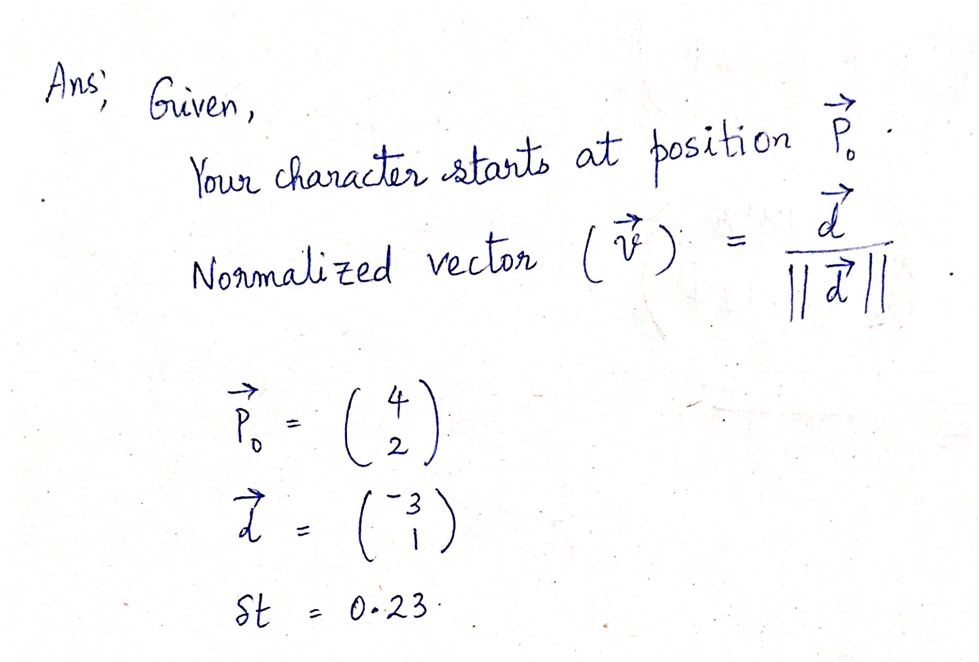 Ans; Given,
Your character starts at position P⃗₀.
Normalized vector (v⃗) = d⃗ / ||d⃗||.
P⃗₀ = (4
2)
d⃗ = (-3
1)
δt = 0.23.